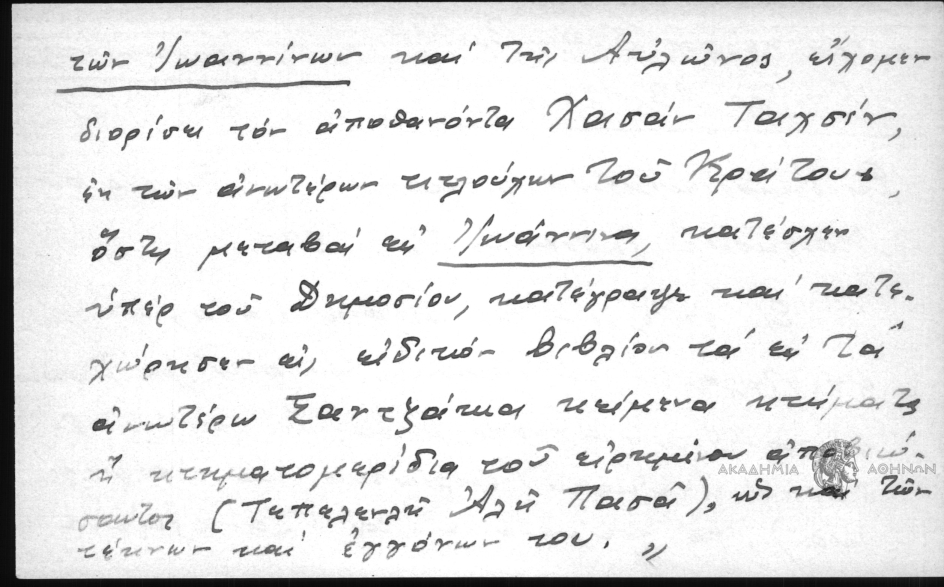 τῶν Ἰωαννίνων καί τῆς Αὐλῶνος, εἴχομεν
διορίσει τόν ἀποθανόντα Χασάν Ταχσίν,
ἐκ τῶν ἀνωτέρων τιτλούχων τοῦ Κράτους,
ὅστις μεταβάς εἰς Ἰωάννινα, κατέσχεν
ὑπέρ τοῦ Δημοσίου, κατέγραψε καί κατε-
χώρησεν εἰς εἰδικόν βιβλίον τά εἰς τά
ἀνωτέρω Σαντζάκια κείμενα κτήματα
ἤ κτηματομερίδια τοῦ εἰρημένου ἀποβιώ-
σαντος (Τεπελενλῆ Ἀλῆ Πασᾶ), ὡς καί τῶν
τέκνων καί ἐγγόνων του. »
ΑΚΑΔΗΜΙΑ ΑΘΗΝΩΝ